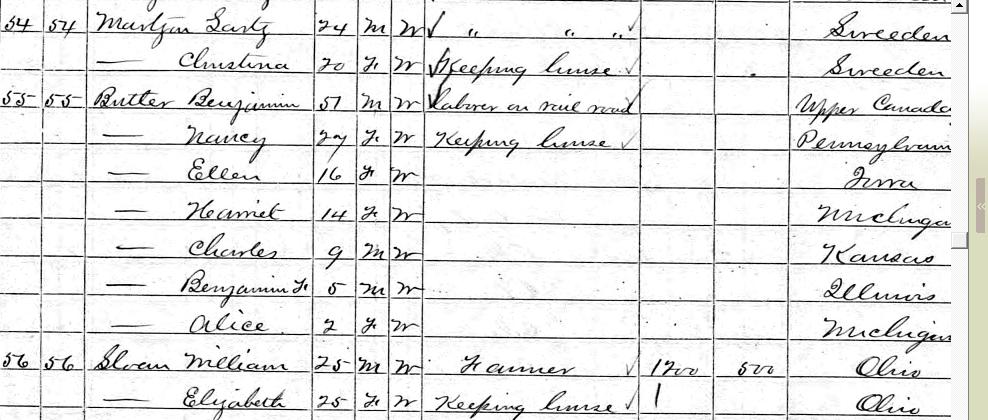 54 54 Martzin Lartz 24 M W " " " Sweeden
— Christina 20 F W Keeping house Sweeden
55 55 Butler Benjamin 51 M W laborer on rail road Upper Canada
— Nancy 27 F W Keeping house Pennsylvani
— Ellen 16 F W Iowa
— Harriet 14 F W Michiga
— Charles 9 M W Kansas
— Benjamin F 5 M W Illinois
— Alice 2 F W Michigan
56 56 Sloan William 25 M W Farmer 1200 500 Ohio
— Elizabeth 25 F W Keeping house Ohio